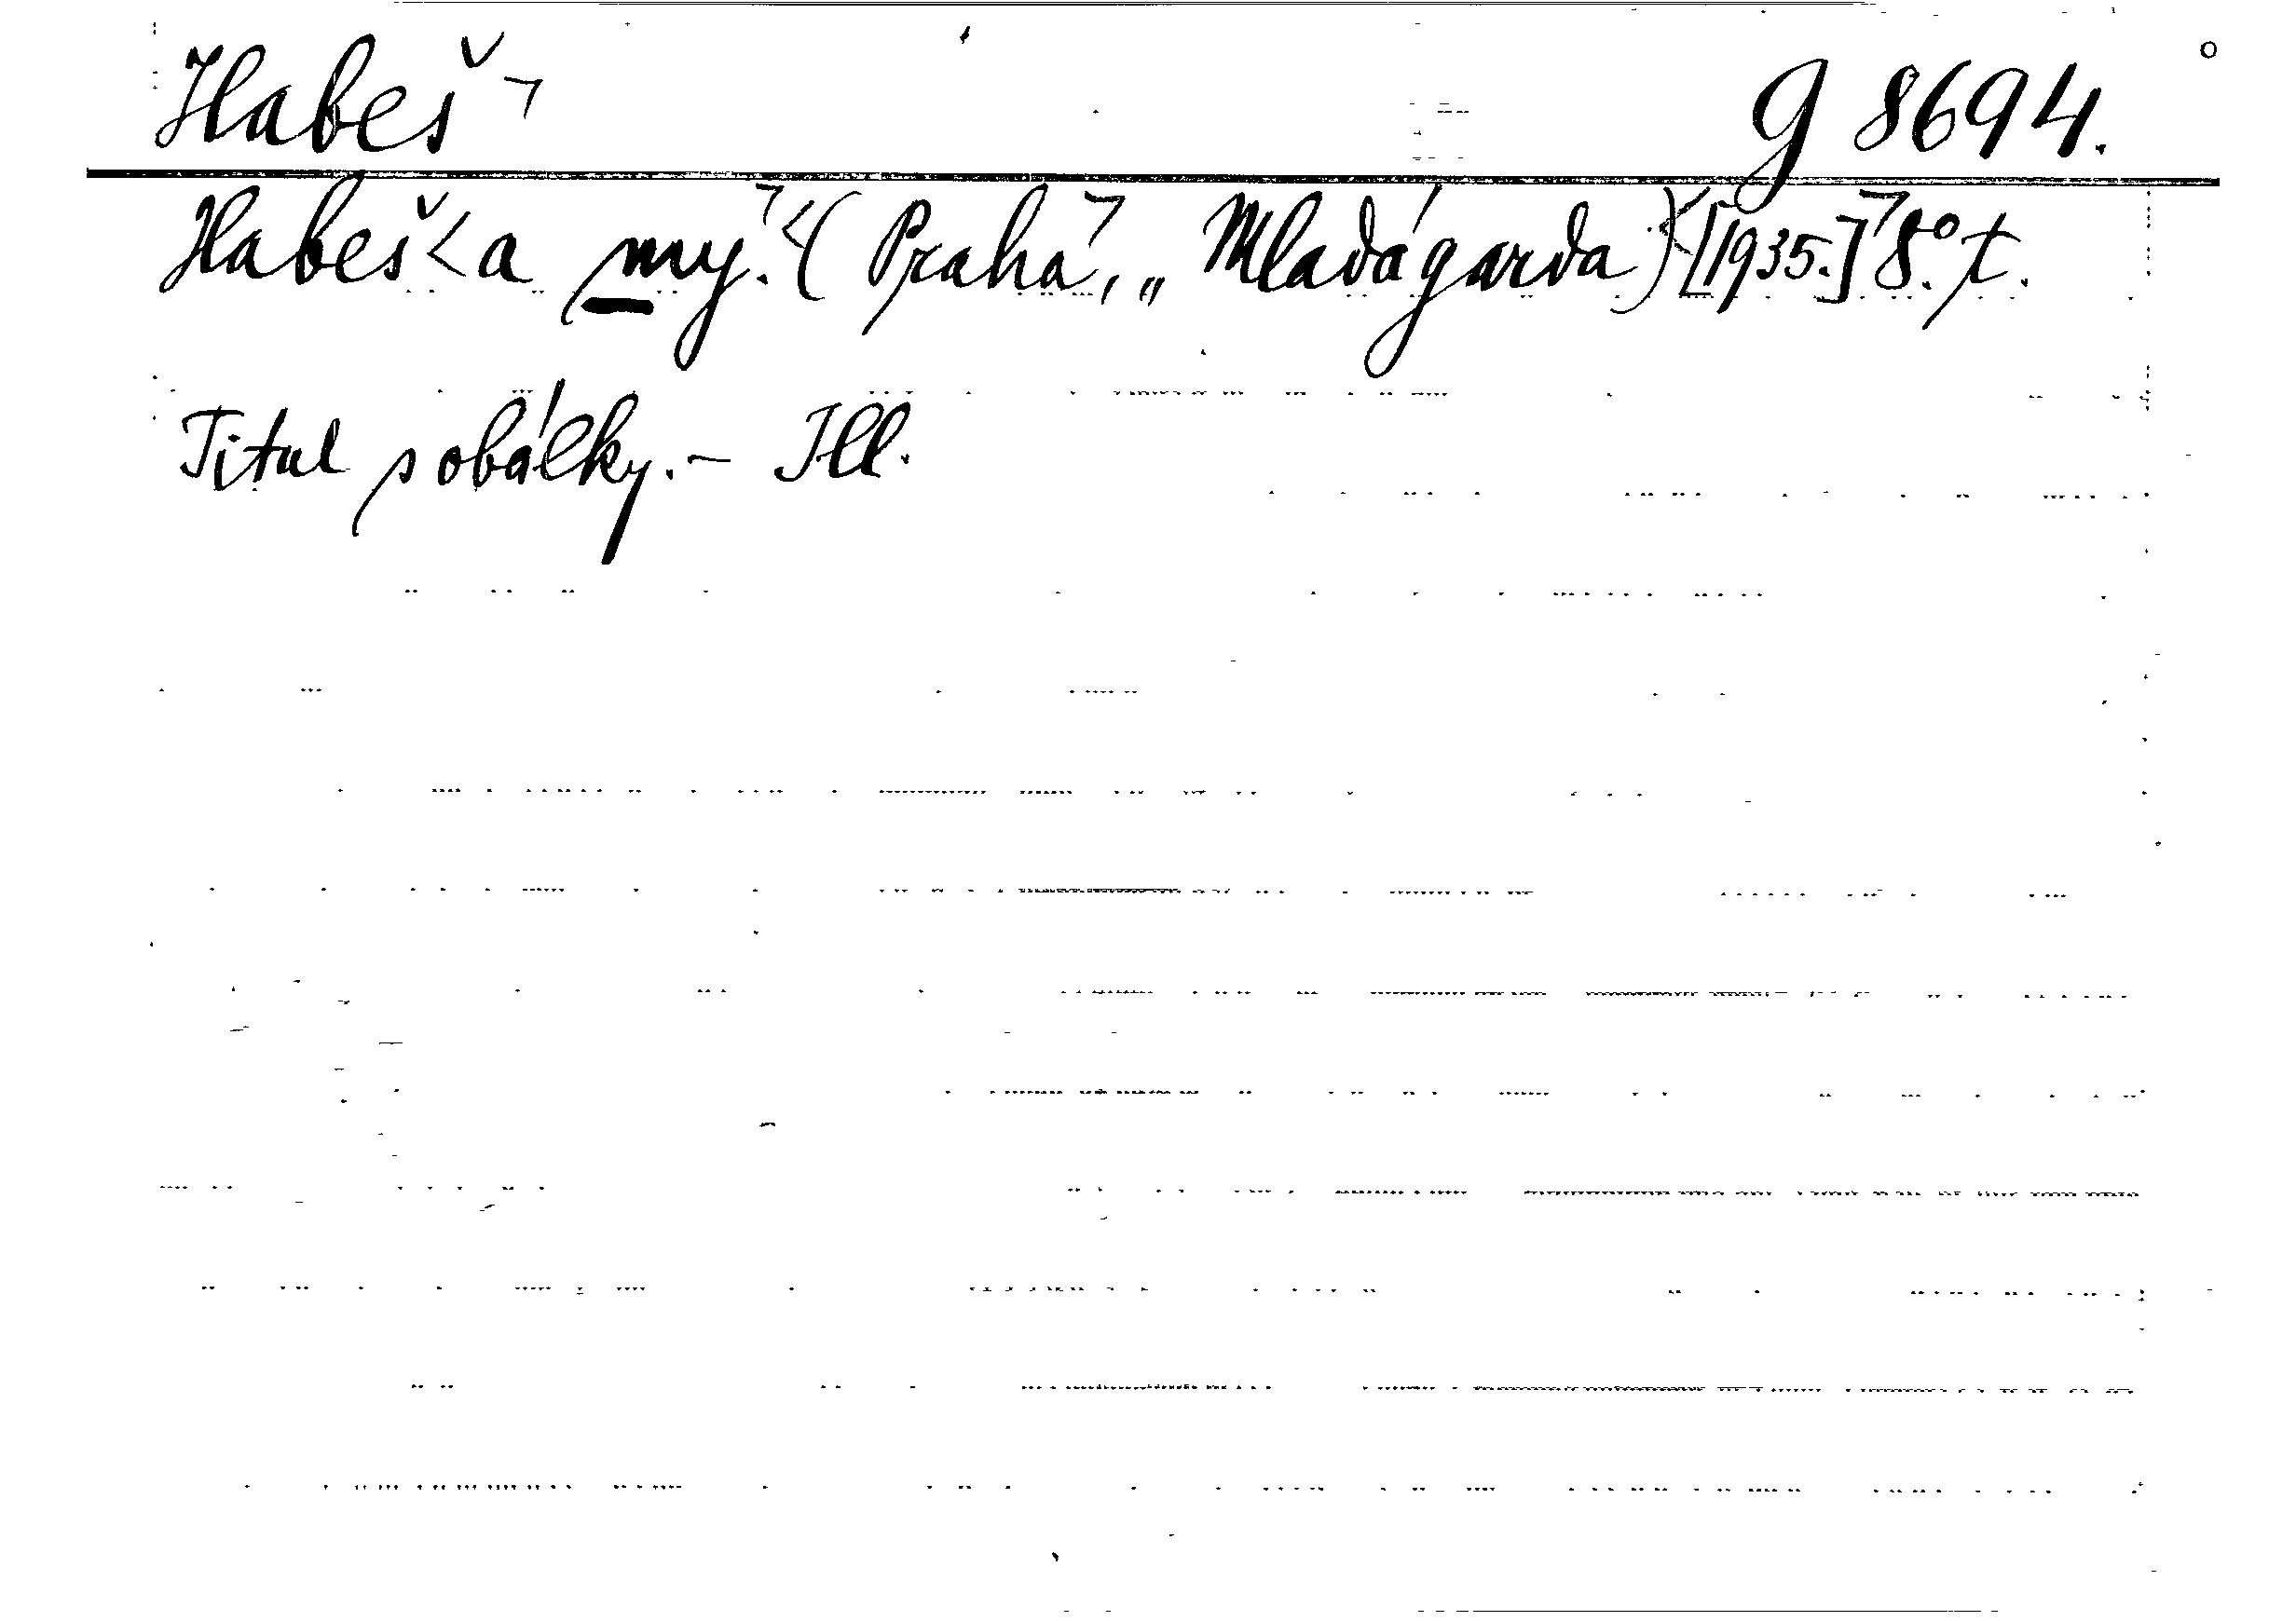 Habeš ¬ g 8694.
Habeš < a my. ¬ < (Praha ¬, „Mladá garda) < [1935.] ¬ 8° t.
Titul s obálky. – Ill.